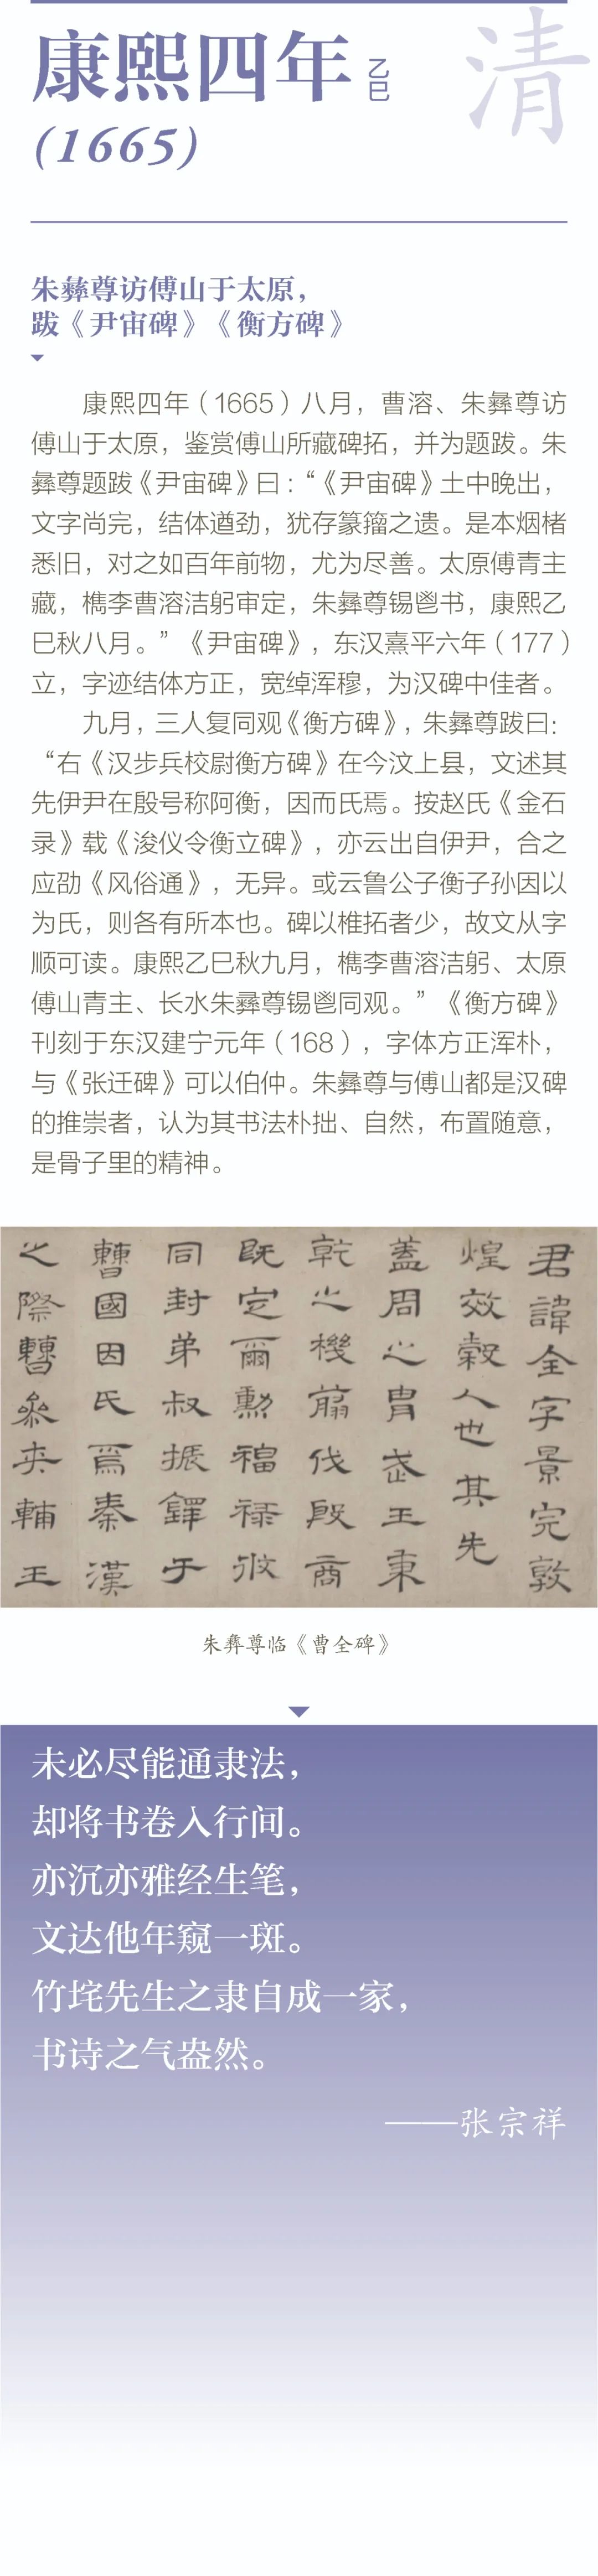 康熙四年 乙巳
清
(1665)
朱彝尊访傅山于太原，
跋《尹宙碑》《衡方碑》
康熙四年（1665）八月，曹溶、朱彝尊访
傅山于太原，鉴赏傅山所藏碑拓，并为题跋。朱
彝尊题跋《尹宙碑》曰：“《尹宙碑》土中晚出，
文字尚完，结体遒劲，犹存篆籀之遗。是本烟楮
悉旧，对之如百年前物，尤为尽善。太原傅青主
藏，檇李曹溶洁躬审定，朱彝尊锡鬯书，康熙乙
巳秋八月。”《尹宙碑》，东汉熹平六年（177）
立，字迹结体方正，宽绰浑穆，为汉碑中佳者。
九月，三人复同观《衡方碑》，朱彝尊跋曰：
“右《汉步兵校尉衡方碑》在今汶上县，文述其
先伊尹在殷号称阿衡，因而氏焉。按赵氏《金石
录》载《浚仪令衡立碑》，亦云出自伊尹，合之
应劭《风俗通》，无异。或云鲁公子衡子孙因以
为氏，则各有所本也。碑以椎拓者少，故文从字
顺可读。康熙乙巳秋九月，檇李曹溶洁躬、太原
傅山青主、长水朱彝尊锡鬯同观。”《衡方碑》
刊刻于东汉建宁元年（168），字体方正浑朴，
与《张迁碑》可以伯仲。朱彝尊与傅山都是汉碑
的推崇者，认为其书法朴拙、自然，布置随意，
是骨子里的精神。
君諱全字景完敦
煌效穀人也其先
蓋周之胄武王秉
乾之機翦伐殷商
既定爾勳福祿攸
同封弟叔振鐸于
曹國因氏焉秦漢
之際曹參夾輔王
朱彝尊临《曹全碑》
未必尽能通隶法，
却将书卷入行间。
亦沉亦雅经生笔，
文达他年窥一斑。
竹垞先生之隶自成一家，
书诗之气盎然。
——张宗祥